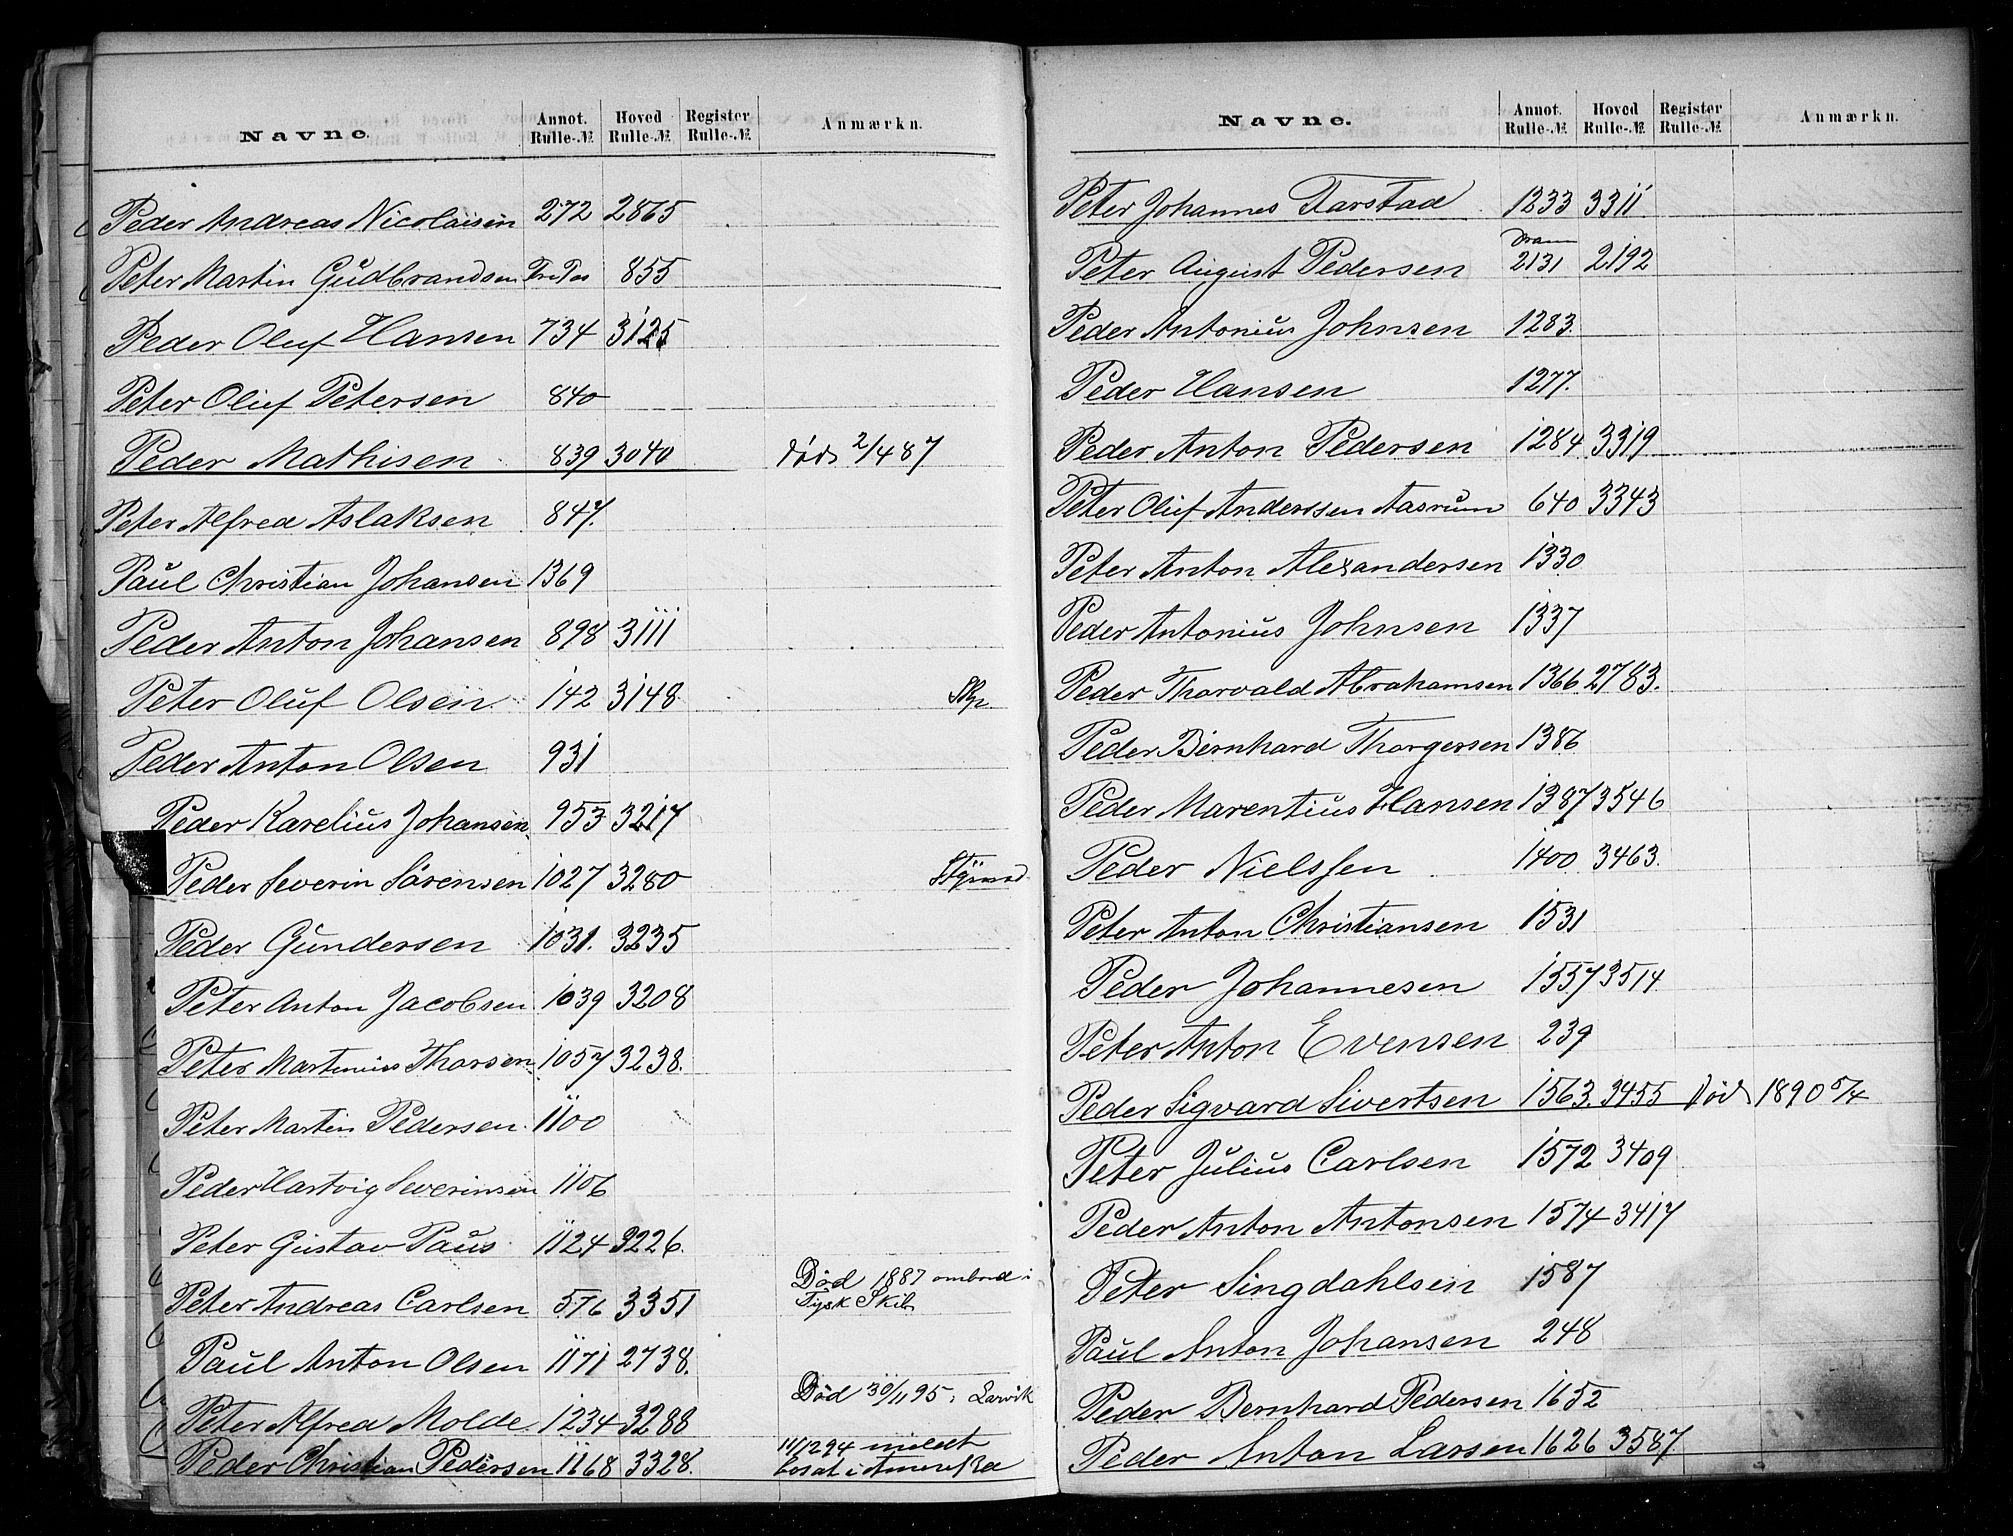 Navne. Annot. Rulle-№ Hoved Rulle-№ Register Rulle-№ Anmærkn.
Peder Andreas Nicolaisen 272 2865
Peter Martin Gudbrandsen 855
Peder Oluf Hansen 734 3125
Peter Oluf Petersen 840
Peder Mathisen 839 3040 død 2/4 87
Peter Alfred Aslaksen 847.
Paul Christian Johansen 1369
Peder Anton Johansen 898 3111
Peter Oluf Olsen 142 3148
Peder Anton Olsen 931
Peder Karelius Johansen 953 3217
Peder Severin Sörensen 1027 3280
Peder Gundersen 1031. 3235
Peter Anton Jacobsen 1039 3208
Peter Martinius Thorsen 1057 3238.
Peter Martin Pedersen 1100
Peder Hartvig Severinsen 1106
Peter Gustav Paus 1124 3226.
Død 1887 ombord i
Peter Andreas Carlsen 576 3351 Tysk Skib
Paul Anton Olsen 1171 2738.
Død 30/11 95 i Larvik
Peter Alfred Molde 1234 3288
11/12 94
Peder Christian Pedersen 1168 3328. bosat i Amerika
Navne. Annot. Rulle-№ Hoved Rulle-№ Register Rulle-№ Anmærkn.
Peter Johannes Farstad 1233 3311
Peter August Pedersen 2131 2192
Peder Antonius Johnsen 1283
Peder Hansen 1277.
Peder Anton Pedersen 1284 3319
Peter Oluf Anderssen Aasrum 640 3343
Peter Anton Alexandersen 1330
Peder Antonius Johnsen 1337
Peder Thorvald Abrahamsen 1366 2783.
Peder Bernhard Thorgersen 1386
Peder Marentius Hansen 1387 3546
Peder Nielssen 1400 3463.
Peter Anton Christiansen 1531
Peder Johannesen 1557 3514
Peter Anton Evensen 239
Peder Sigvard Sivertsen 1563. 3455 Død 1890 5/4
Peter Julius Carlsen 1572 3409
Peder Anton Antonsen 1574 3417
Peter Singdahlsen 1587
Paul Anton Johansen 248
Peder Bernhard Pedersen 1652
Peder Anton Larsen 1626 3587